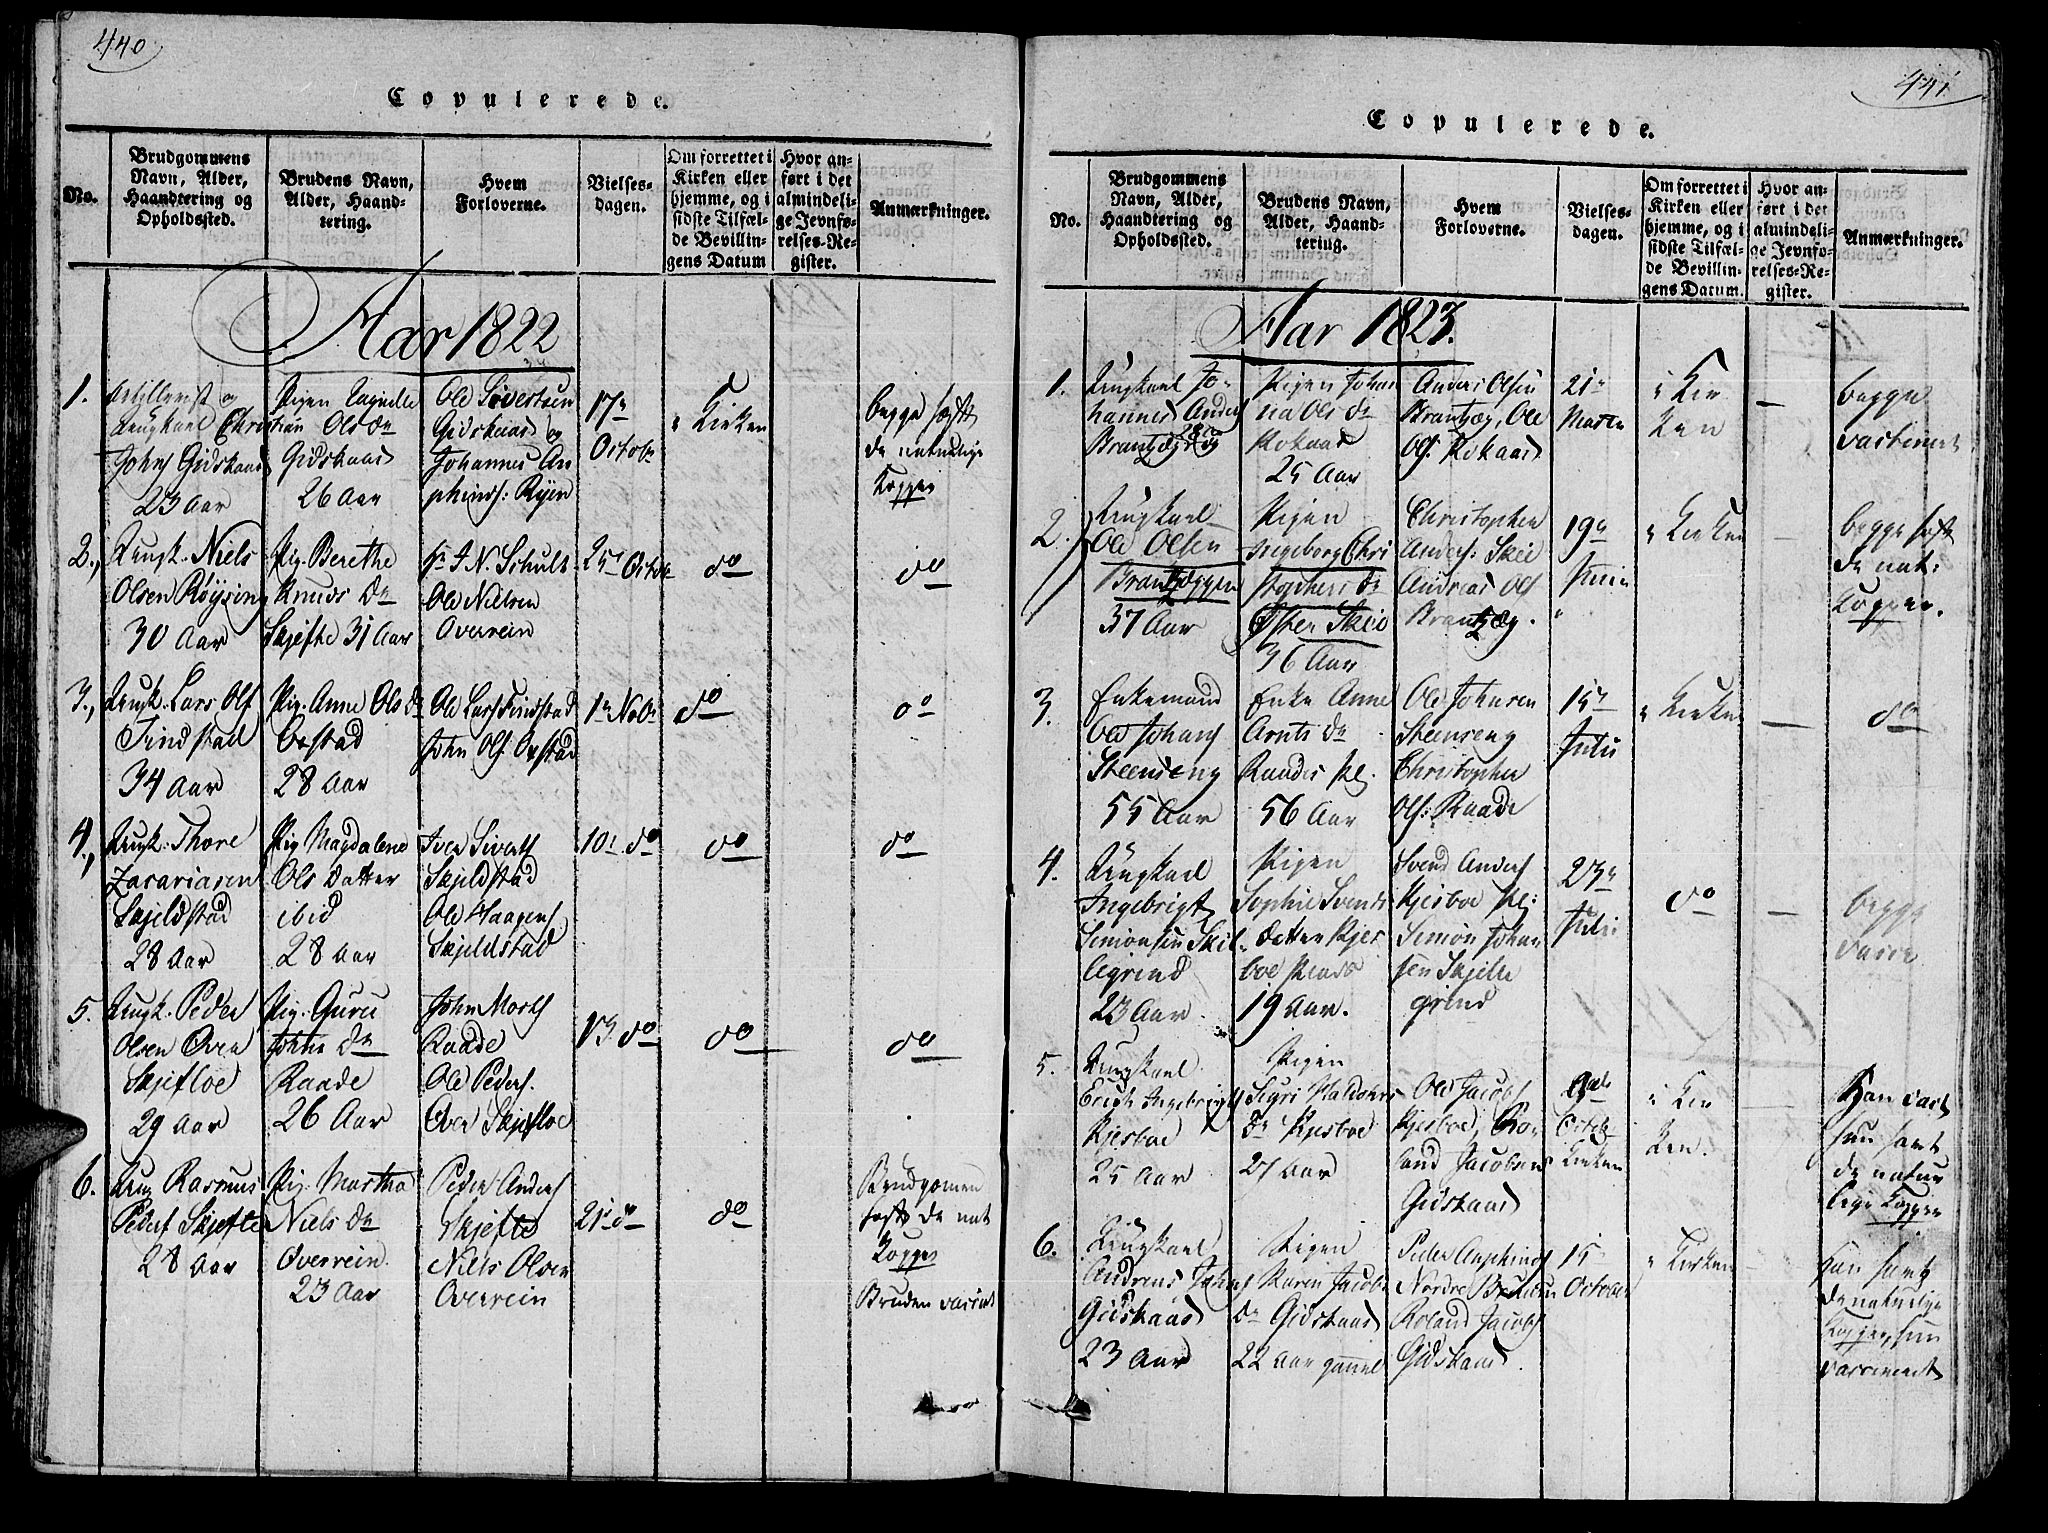 440
Copulerede.
No.
Brudgommens Navn, Alder, Haandtering og Opholdssted.
Brudens Navn, Alder, Haandtering.
Hvem Forloverne.
Vielsesdagen.
Om forrettet i Kirken eller hjemme, og i sidste Tilfælde Bevillingens Datum
Hvor anført i det almindelige Jevnførelses-Register.
Anmærkninger.
Aar 1822
1.
Artillerist og
Ungkarl Christian
Johns Gidskaas
23 Aar
Pigen
Ols Dr
Gidskaas
26 Aar
Ole Sivertsen
Gidskaas og
Johannes An
phinds: Ryen
17de
Octobr
i Kirken
begge haft
de naturlige
Kopper
2.,
Ungk. Niels
Olsen Röysing
30 Aar
Pig. Berethe
Knuds Dr
Skjefte 31 Aar
Hr J. N. Schult
Ole Nielsen
Overrein
25de Octobr
do
do
3.,
Ungk. Lars Ols
Findstad
34 Aar
Pig. Anne Ols Dr
Østad
28 Aar
Ole Lars Findstad
John Ols
1te Nobr
do
do
4.,
Ungk. Thore
Zacariasen
Skjeldstad
28 Aar
Pig Magdalene
Ols Datter
ibid
28 Aar
Iver Siverts
Skjeldstad
Ole Haagens
Skjeldstad
10de do
do
do
5.
Ungk. Peder
Olsen Øvre
Skjefloe
29 Aar
Pig. Guru
Johns Dr
Raade
26 Aar
John Morts
Raade
Ole Peders.
Øvre Skjefloe
do
do
do
6.
Ung Rasmus
Peders Skjefte
28 Aar
Pig. Martha
Niels Dr
Overrein.
23 Aar
Peder Anders
Skjefte
Niels Olsen
Overrein
21de do
do
Brudgomen
haft de nat
Kopper
Bruden vaccint
441
Copulerede.
No.
Brudgommens Navn, Alder, Haandtering og Opholdssted.
Brudens Navn, Alder, Haandtering.
Hvem Forloverne.
Vielsesdagen.
Om forrettet i Kirken eller hjemme, og i sidste Tilfælde Bevillingens Datum.
Hvor anført i det almindelige Jevnførelses-Register.
Anmærkninger.
Aar 1823.
1.
Ungkarl Jo-
hannes Anders
Brantzæg
Pigen Johan
na Ols Dr
25 Aar
Anders Olsen
Brantzæg, Ole
21de
Martz
i Kir
ken
begge
2.
Ungkarl
Ole Olsen
Brantzæggen
37 Aar
Pigen
Ingeborg Chri
stophers Dr
Øster Skei
36 Aar
Christopher
Anders: Skei
Andreas Ols
Brantzæg.
19de
Junii
i Kirken
begge haft
de nat:
Kopper.
3.
Enkemand
Ole Johans
Steenseng
55 Aar
Enke Anne
Arnts Dr
56 Aar
Ole Johnsen
Steenseng
Christopher
Ols: Raade
15de
Julii
i Kirken
do
4.
Ungkarl
Ingebrigt
Simonsen Skil
legrind
23 Aar
Pigen
Sophie Svends
datter Kjes
boe
19 Aar.
Svend Anders
Kjesboe
Simon Johan
sen Skjelle
grind
23de
Julii
do
begge
5.
Ungkarl
Erich Ingebrigts
Kjesboe
25 Aar
Pigen
Sigri Haldoers
Dr Kjesboe
27 Aar
Ole Jacobs
Kjesboe, Ro-
land Jacobsen
Gidskaas
Octob
Kirken
i Kir
ken.
Han
hun haft
de natur
lige Kopper
6.
Ungkarl
Andreas Johns
Gidskaas
23 Aar
Pigen
Karen Jacobs
Dr Gidskaas
22 Aar gammel
Peder Anphinds
Nordre
Roland Jacobs
Gidskaas
15
October
i Kirken
han haft
de naturlige
Kopper, hun
vaccineret